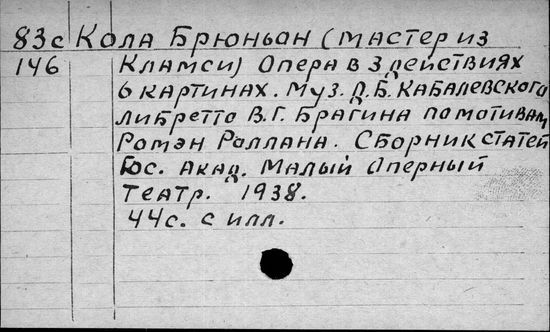 83с Кола Брюньон (мастер из
146 Кламси) Опера в 3 действиях
6 картинах. Муз. Д.Б. Кабалевского
либретто В.Г. Брагина по мотивам
Ромэн Роллана. Сборник статей
Гос. Акад. Малый Оперный
Театр. 1938.
44с. с илл.